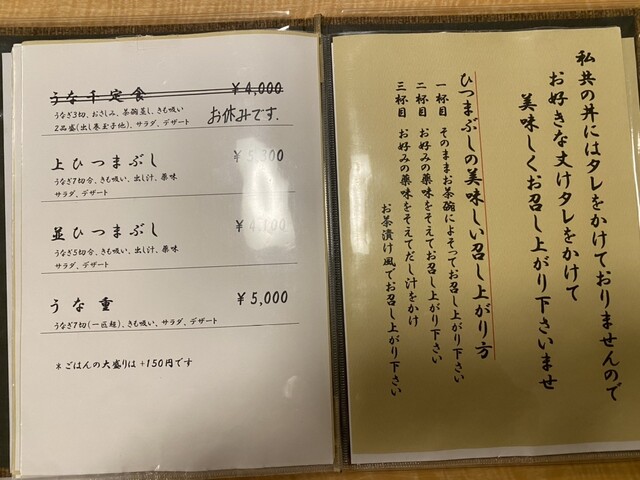 うな千定食 ¥4,000
うなぎ3切、おさしみ、茶碗蒸し、きも吸い
お休みです.
2品盛(出し巻玉子他)、サラダ、デザート
上ひつまぶし ¥5,300
うなぎ7切分、きも吸い、出し汁、薬味
サラダ、デザート
並ひつまぶし ¥4,100
うなぎ5切分、きも吸い、出し汁、薬味
サラダ、デザート
うな重 ¥5,000
うなぎ7切(一匹超)、きも吸い、サラダ、デザート
*ごはんの大盛りは+150円です
私共の丼にはタレをかけておりませんので
お好きな丈けタレをかけて
美味しくお召し上がり下さいませ
ひつまぶしの美味しい召し上がり方
一杯目 そのままお茶碗によそってお召し上がり下さい
二杯目 お好みの薬味をそえてお召し上がり下さい
三杯目 お好みの薬味をそえてだし汁をかけ
お茶漬け風でお召し上がり下さい